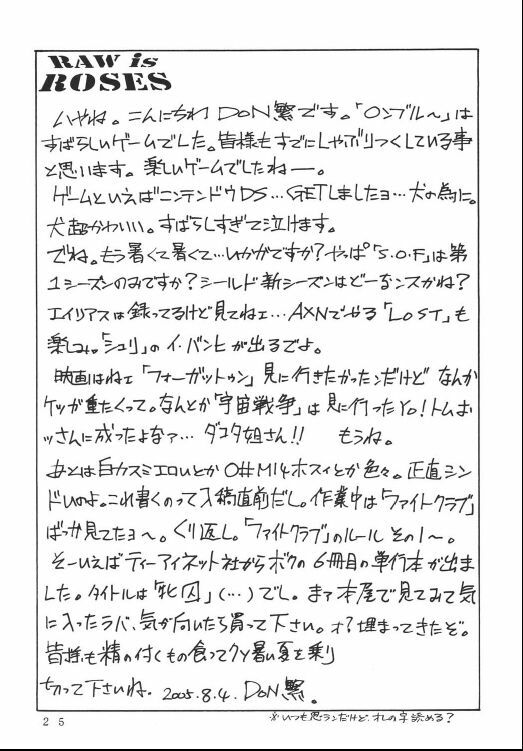 RAW is
ROSES
いやね。こんにちわ DoN繁です。「Oンブル〜」は
すばらしいゲームでした。皆様もすでにしゃぶりつくしている事
と思います。楽しいゲームでしたねー。
ゲームといえばニンテンドウDS…GETしましたョ…犬の為に。
犬超かわいい。すばらしすぎて泣けます。
でね。もう暑くて暑くて…いかがですか？やっぱ「S.O.F」は第
1シーズンのみですか？シールド新シーズンはどーなンスかね？
エイリアスは録ってるけど見てねェ…AXNでやる「LOST」も
楽しみ。「シュリ」のイ・バンヒが出るでよ。
映画はねェ「フォーガットゥン」見に行きたかったンだけど なんか
ケツが重たくって。なんとか「宇宙戦争」は見に行ったYo！トムおッ
さんに成ったよなァ… ダコタ姐さん!! もうね。
あとは白カスミエロいとか O#M14ホスィとか色々。正直シン
ドいのよ。これ書くのって入稿直前だし。作業中は「ファイトクラブ」
ばっか見てたョ〜。くり返し。「ファイトクラブ」のルール その1〜。
そーいえばティーアイネット社からボクの6冊目の単行本が出ま
した。タイトルは「牝囚」(…)でし。まァ本屋で見てみて気
に入ったラバ、気が向いたら買って下さい。オ？埋まってきたぞ。
皆様も精の付くもの食ってクソ暑い夏を乗り
切って下さいね。2005.8.4. DoN繁。
※いつも思うンだけど、オレの字読める？
25